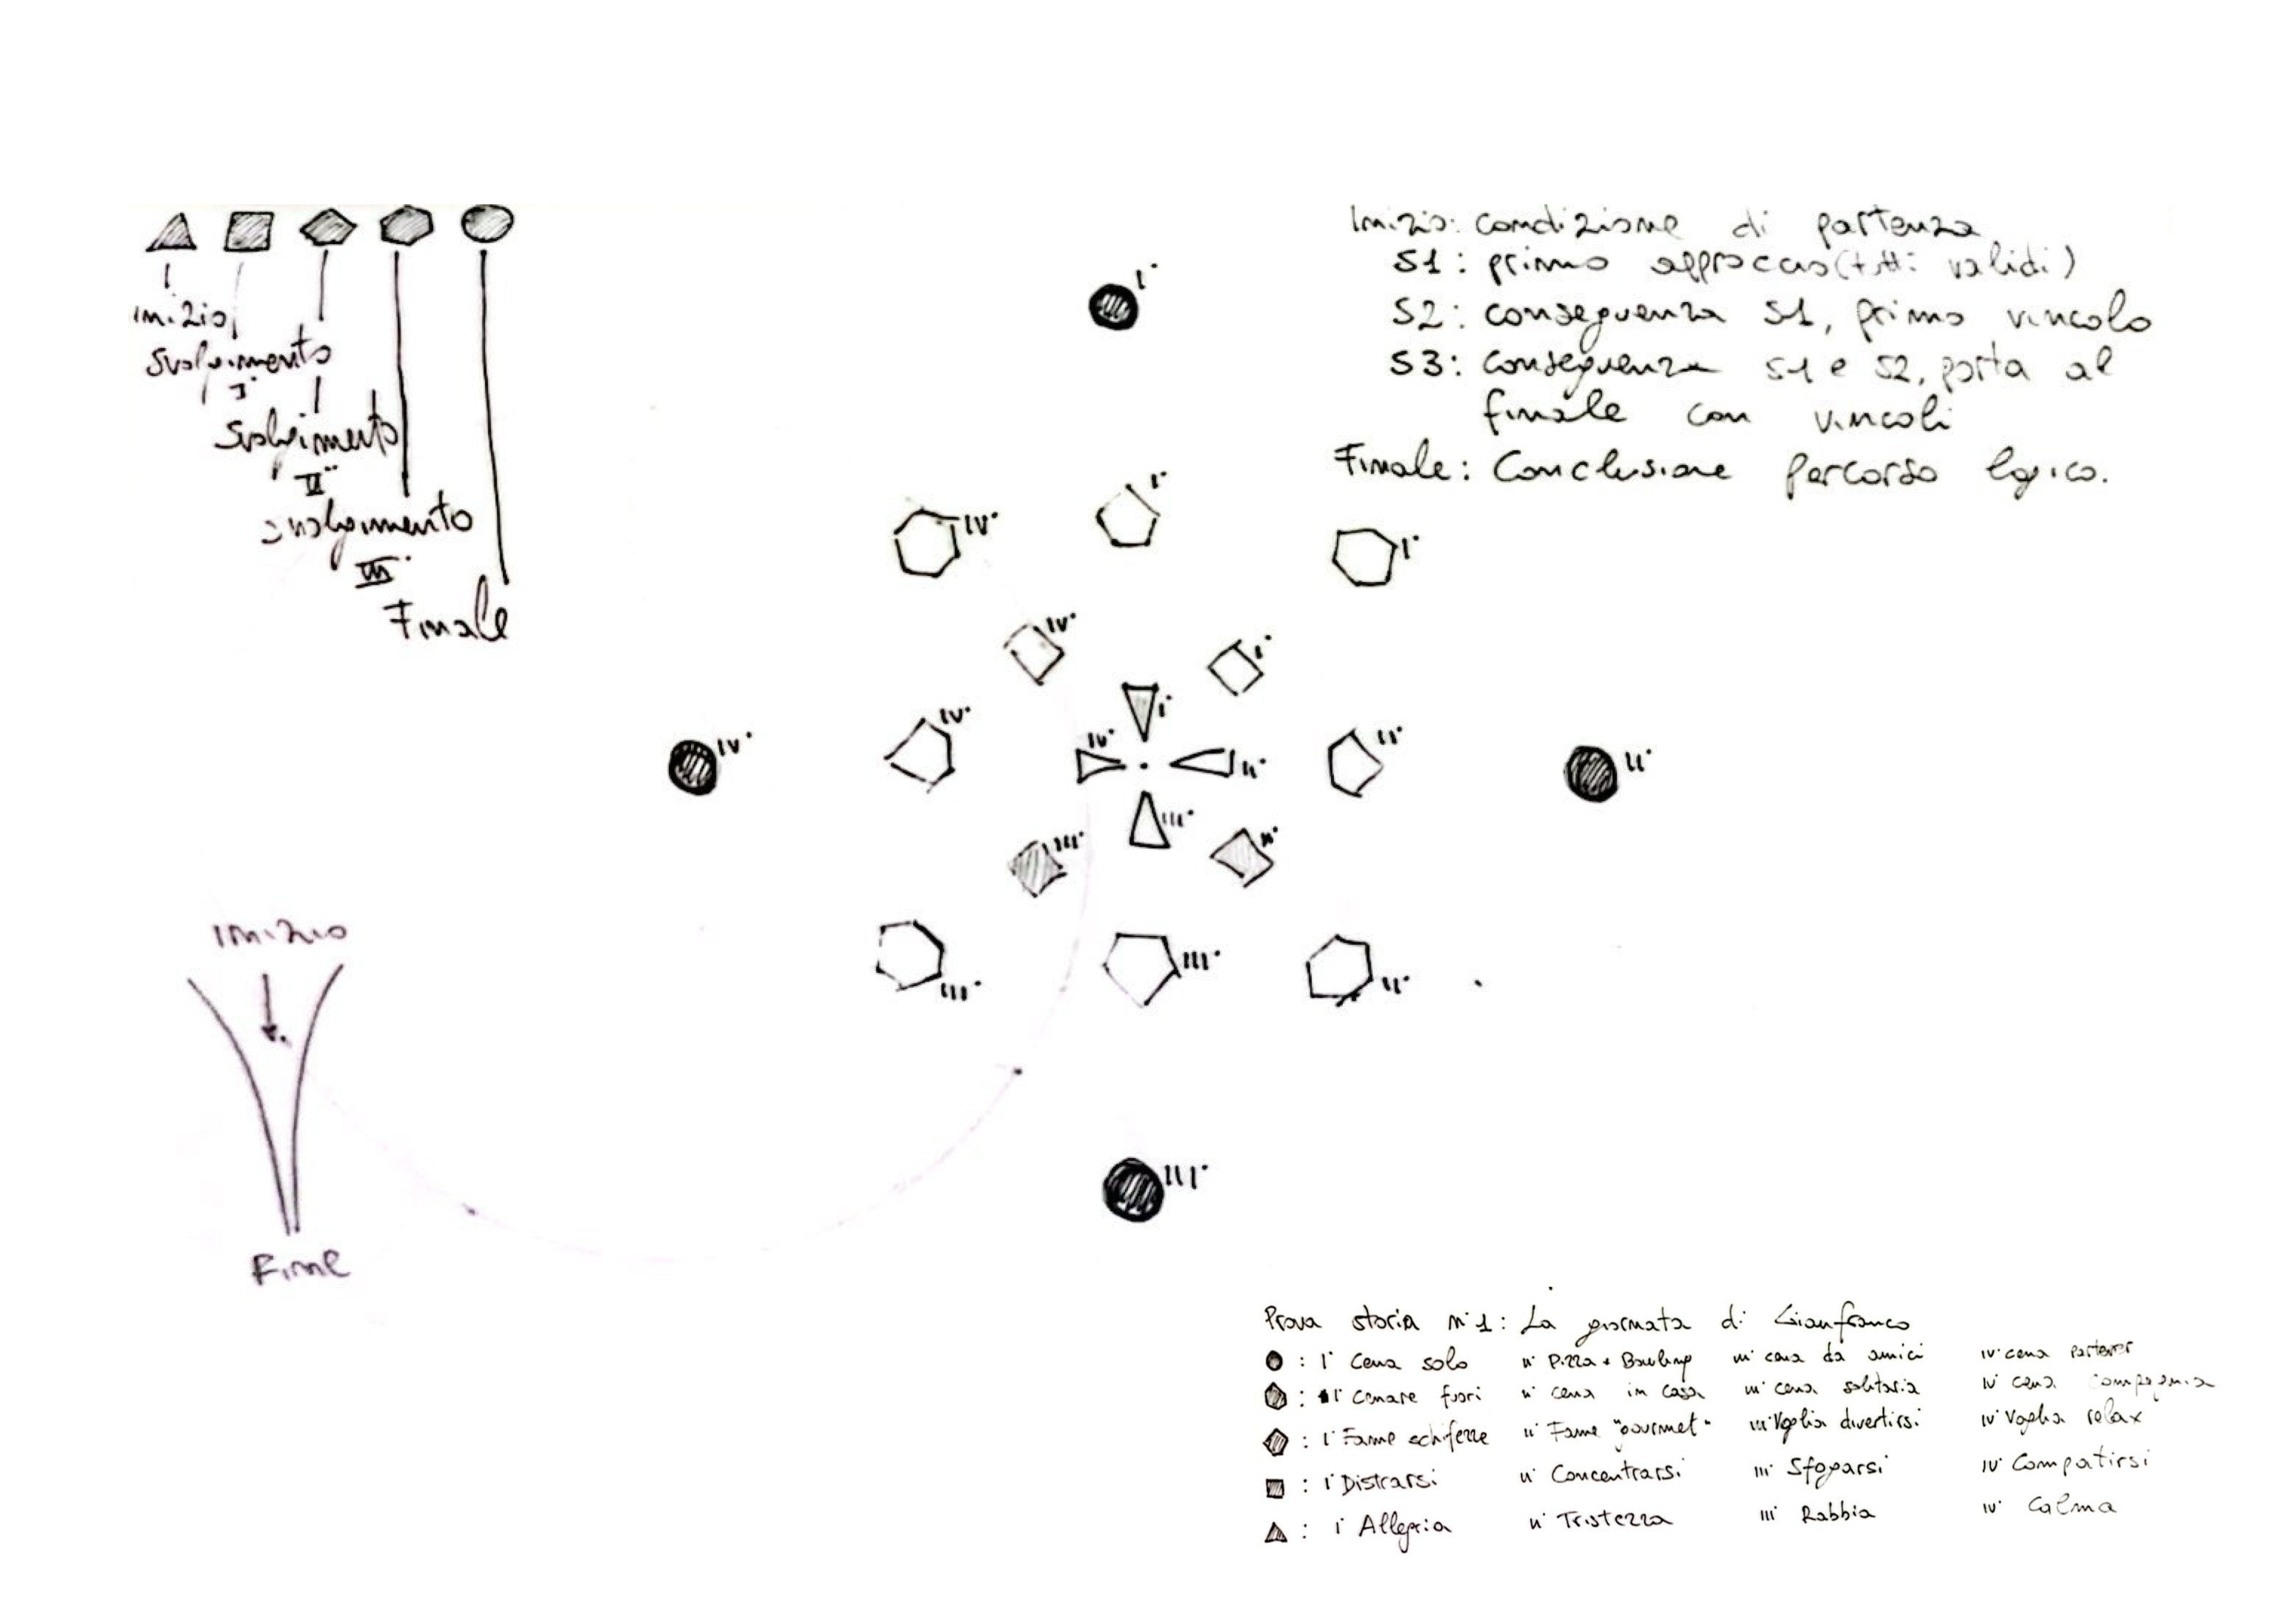 Inizio
Svolgimento
I°
Svolgimento
II°
Svolgimento
III°
Finale
Inizio: condizione di partenza
S1: primo approccio (tutti validi)
S2: conseguenza S1, primo vincolo
S3: conseguenza S1 e S2, porta al
finale con vincoli
Finale: Conclusione percorso logico.
I°
IV° I° I°
IV° I°
I°
IV° IV° IV° II° II° II°
III°
III° II°
III° III° II°
III°
Inizio
Fine
Prova storia n°1: La giornata di Gianfranco
: I° Cena solo II° Pizza + Bowling III° cena da amici IV° cena partner
: I° Cenare fuori II° cena in casa III° cena solitaria IV° cena compagnia
: I° Fame schifezze II° Fame "gourmet" III° Voglia divertirsi IV° Voglia relax
: I° Distrarsi II° Concentrarsi III° Sfogarsi IV° Compatirsi
: I° Allegria II° Tristezza III° Rabbia IV° Calma